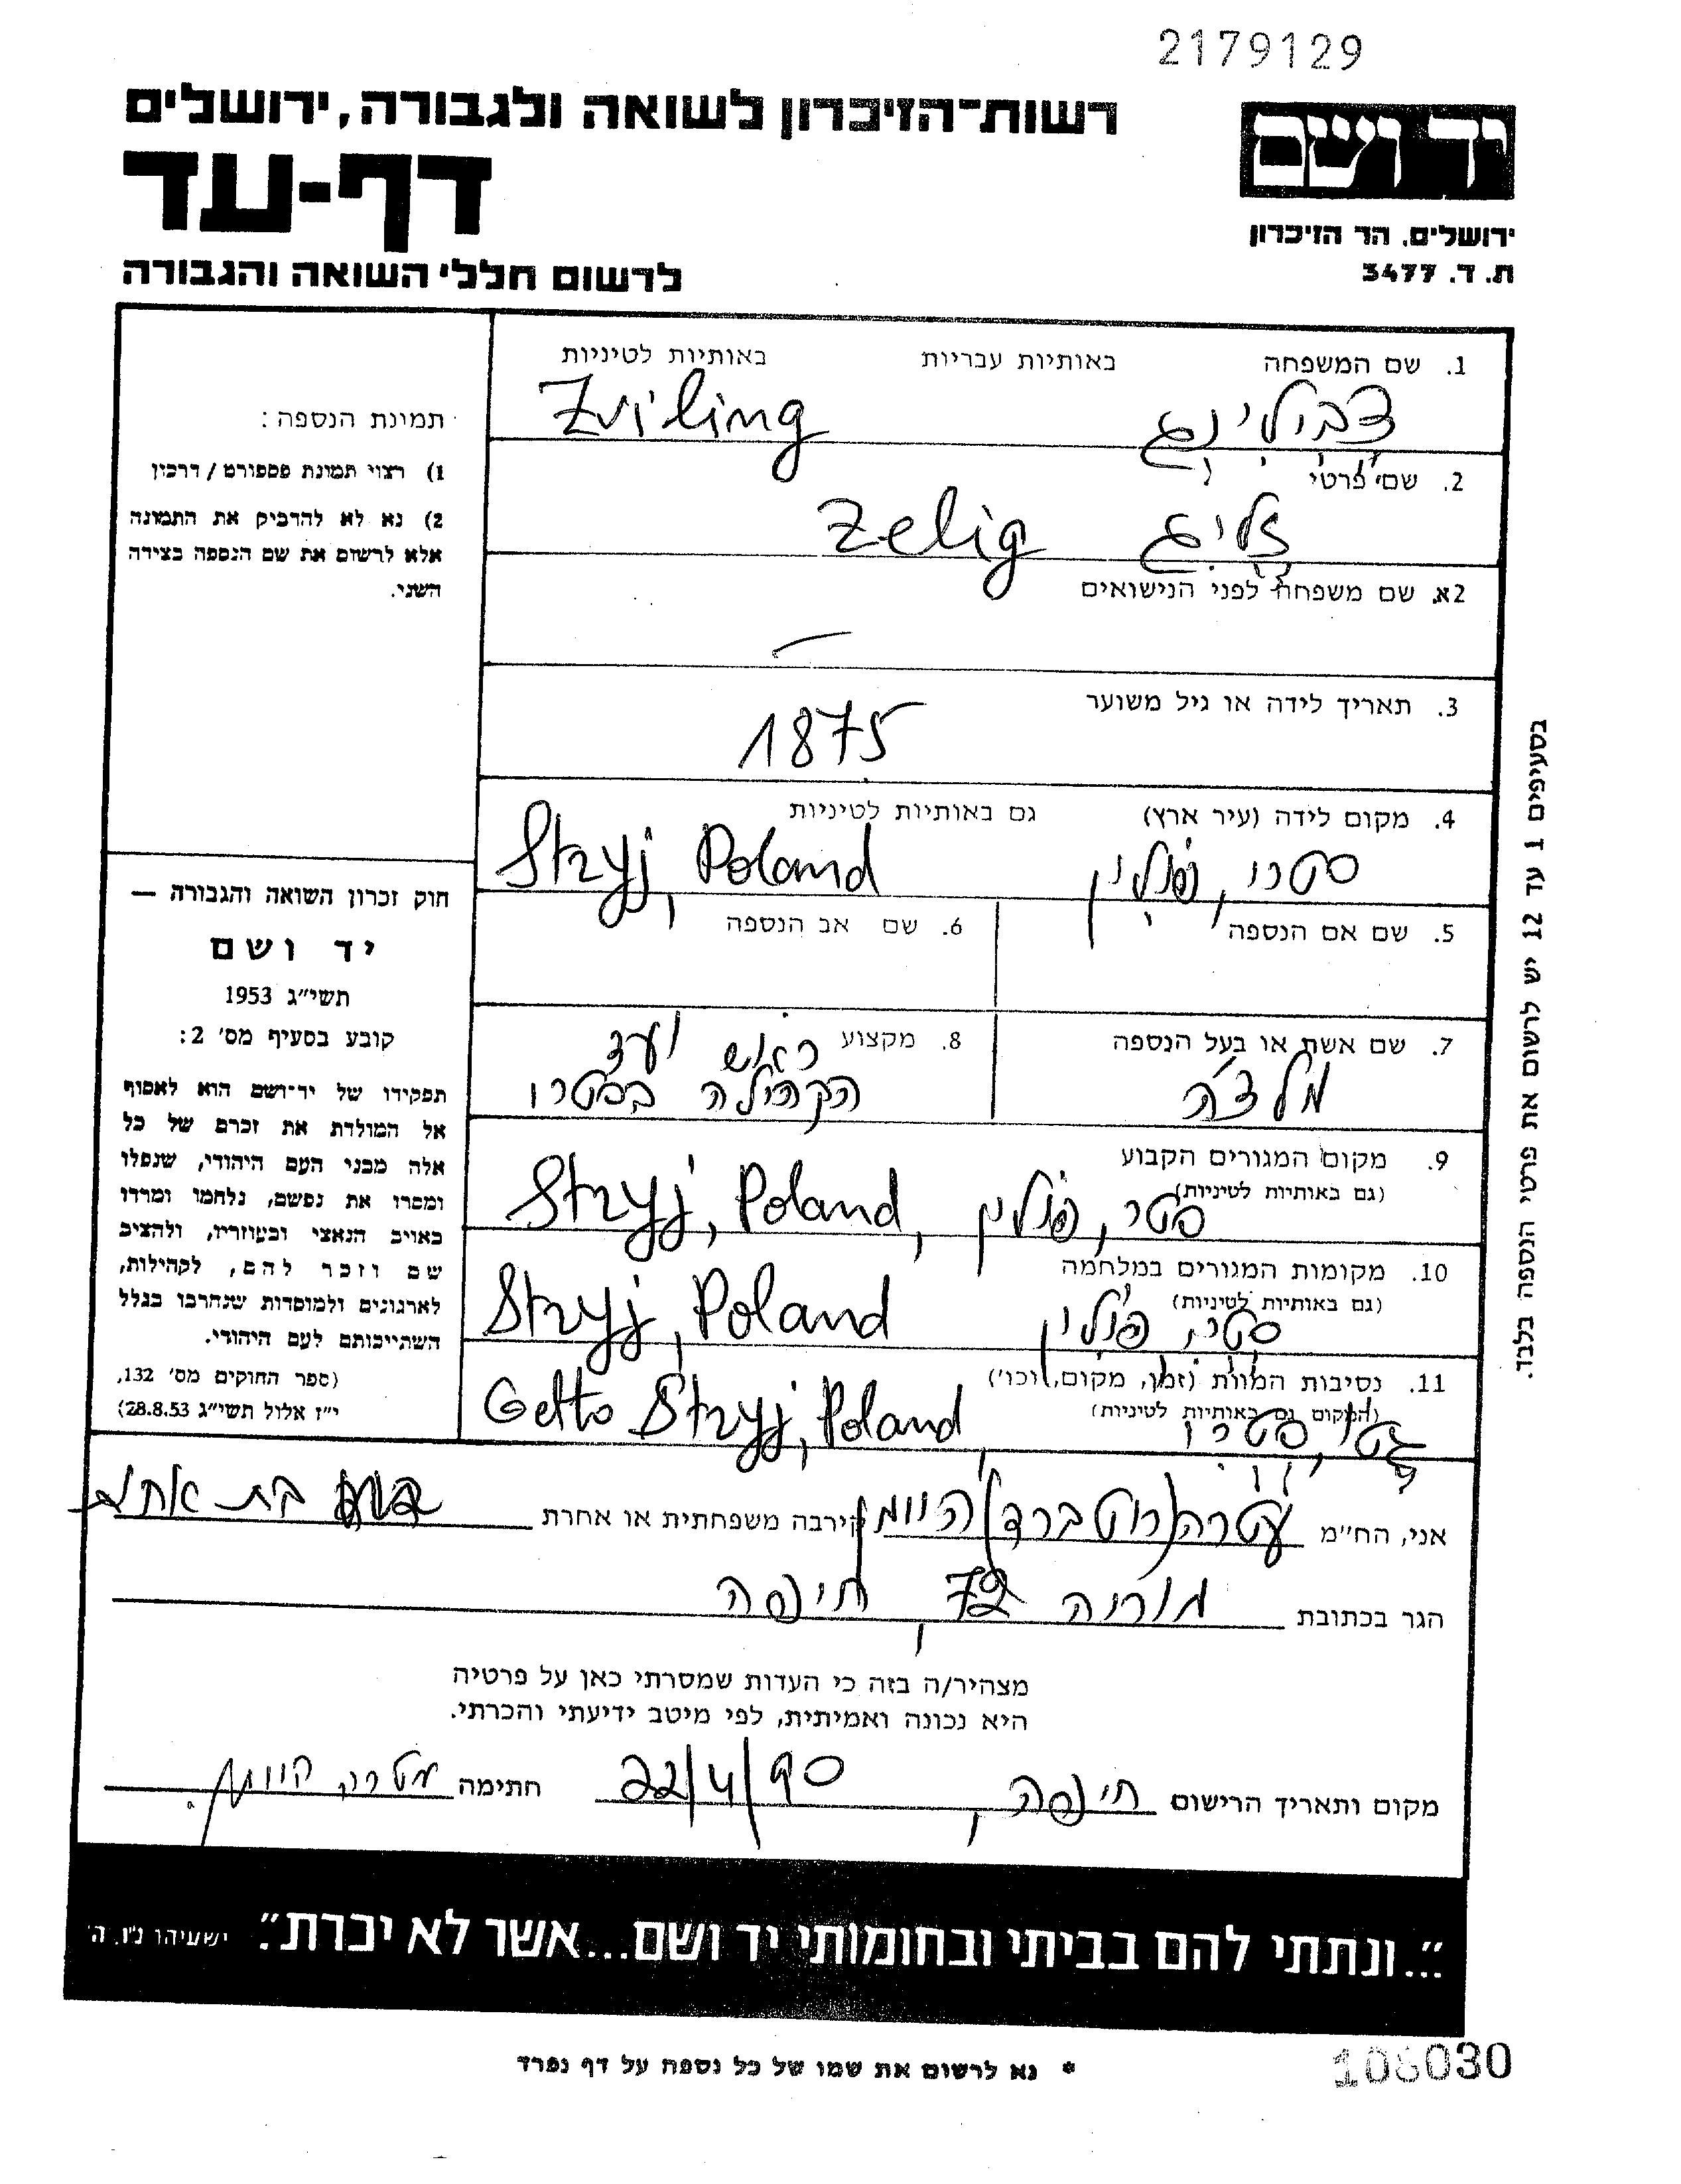 2179129
רשות־הזיכרון לשואה ולגבורה, ירושלים
יד ושם
דף-עד
ירושלים, הר הזיכרון
ת. ד. 3477
לרשום חללי השואה והגבורה
1. שם המשפחה באותיות עבריות באותיות לטיניות
צבילינג Zviling
2. שם פרטי
זליג Zelig
2א. שם משפחה לפני הנישואים
—
3. תאריך לידה או גיל משוער
1875
4. מקום לידה (עיר ארץ) גם באותיות לטיניות
סטרי, פולין Stryj, Poland
5. שם אם הנספה
6. שם אב הנספה
7. שם אשת או בעל הנספה
מלצה
8. מקצוע ראש ועד
הקהילה בסטרי
9. מקום המגורים הקבוע
(גם באותיות לטיניות)
סטרי, פולין, Stryj, Poland
10. מקומות המגורים במלחמה
(גם באותיות לטיניות)
סטרי, פולין Stryj, Poland
11. נסיבות המוות (זמן, מקום, וכו')
(המקום גם באותיות לטיניות)
גטו, סטרי Getto Stryj, Poland
תמונת הנספה:
1) רצוי תמונת פספורט / דרכון
2) נא לא להדביק את התמונה
אלא לרשום את שם הנספה בצידה
השני.
חוק זכרון השואה והגבורה —
יד ושם
תשי"ג 1953
קובע בסעיף מס' 2:
תפקידו של יד־ושם הוא לאסוף
אל המולדת את זכרם של כל
אלה מבני העם היהודי, שנפלו
ומסרו את נפשם, נלחמו ומרדו
באויב הנאצי ובעוזריו, ולהציב
שם וזכר להם, לקהילות,
לארגונים ולמוסדות שנחרבו בגלל
השתייכותם לעם היהודי.
(ספר החוקים מס' 132,
י"ז אלול תשי"ג 28.8.53)
בסעיפים 1 עד 12 יש לרשום את פרטי הנספה בלבד.
אני, הח"מ עטרה (רוטברד) קירבה משפחתית או אחרת בת אחת
הגר בכתובת מוריה 72, חיפה
מצהיר/ה בזה כי העדות שמסרתי כאן על פרטיה
היא נכונה ואמיתית, לפי מיטב ידיעתי והכרתי.
מקום ותאריך הרישום חיפה, 22/4/90 חתימה עטרה
"...ונתתי להם בביתי ובחומותי יד ושם...אשר לא יכרת." ישעיהו נ"ו, ה'
* נא לרשום את שמו של כל נספה על דף נפרד
108030